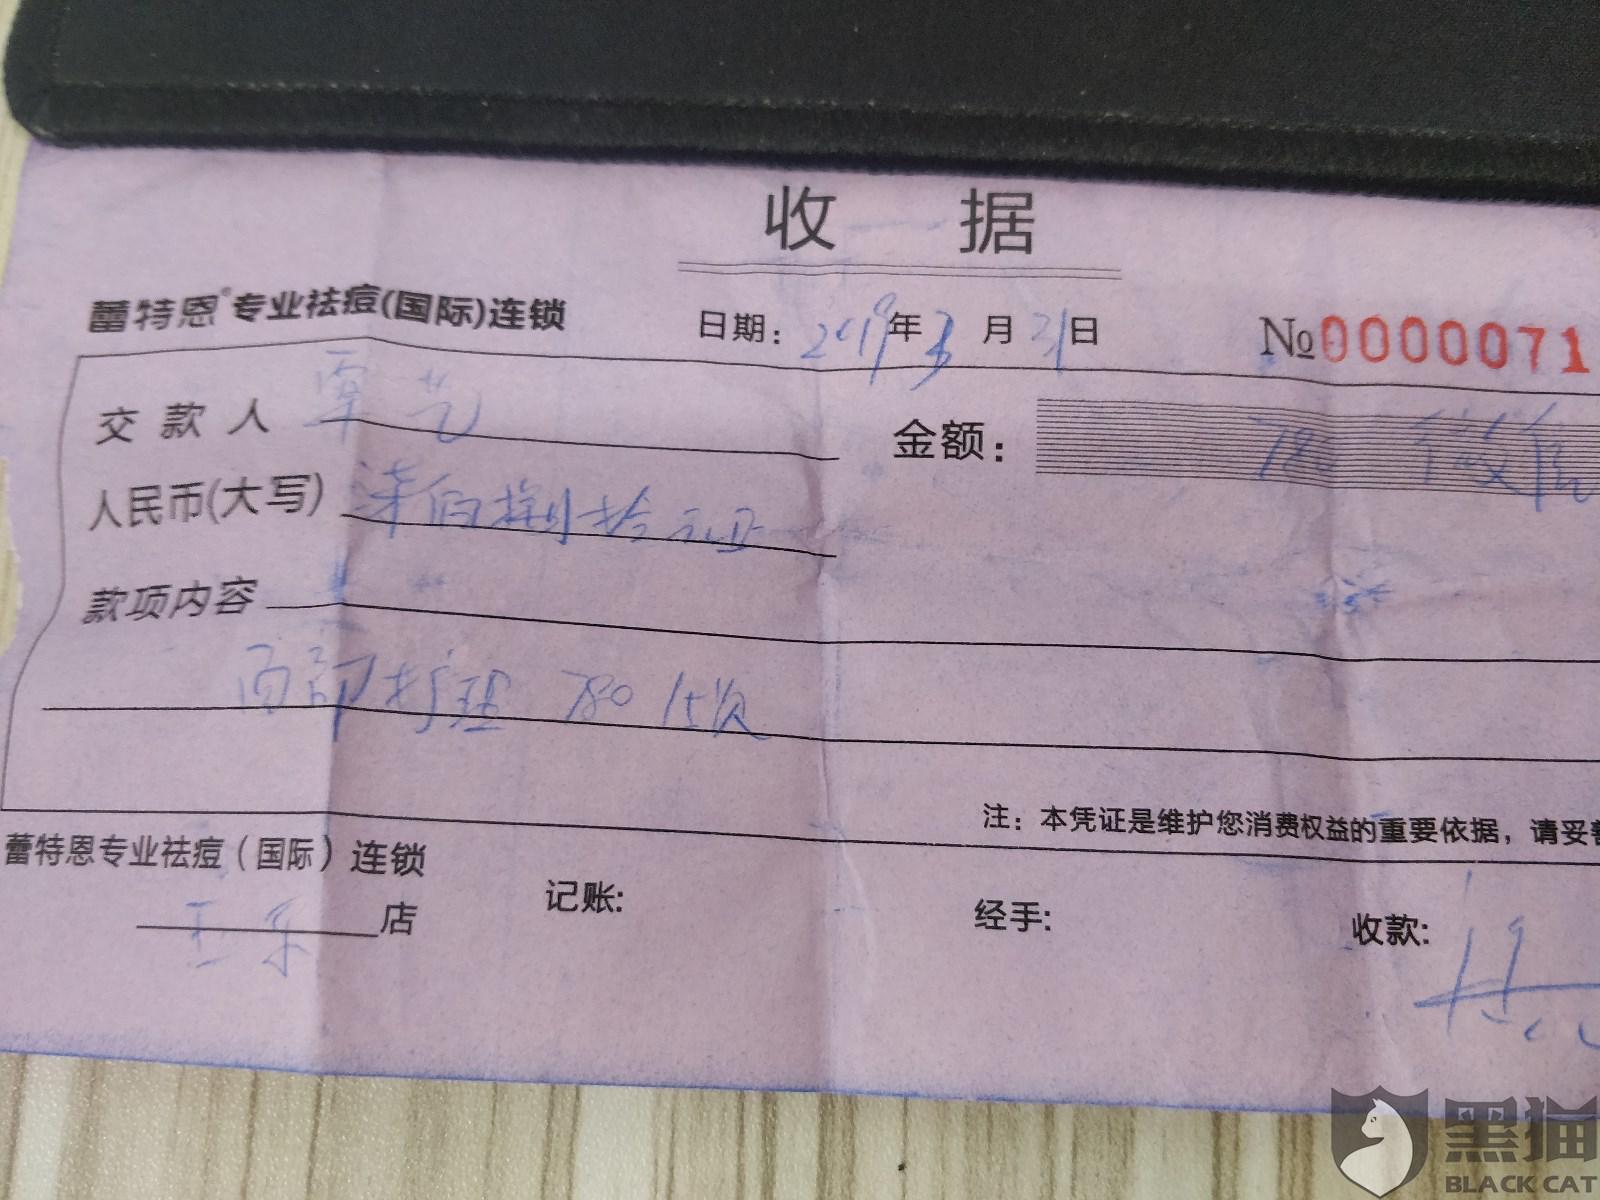 收 据
蕾特恩®专业祛痘(国际)连锁 日期：2019年3月31日 №0000071
交款人 覃艺 金额：780 微信
人民币(大写) 柒佰捌拾元正
款项内容
面部护理 780 15次
注：本凭证是维护您消费权益的重要依据，请妥善
蕾特恩专业祛痘（国际）连锁
店 记账: 经手: 收款:
黑猫
BLACK CAT